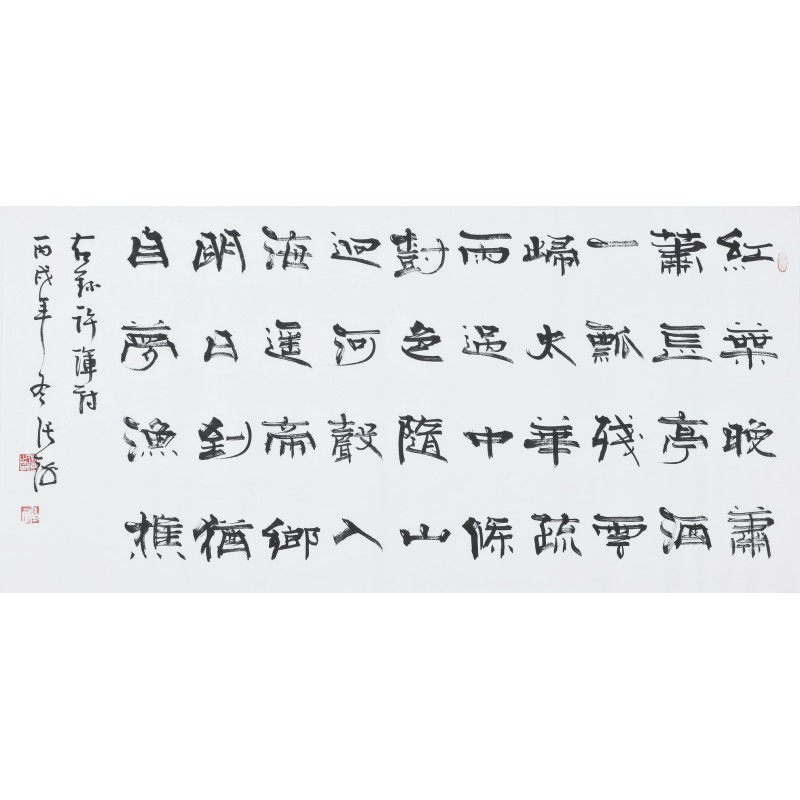 紅葉晚蕭
蕭長亭酒
一瓢殘雲
歸太華疏
雨過中條
尌色隨山
迥河聲入
海遙帝鄉
明日到猶
自夢漁樵
右錄許渾詩
丙戌年冬張